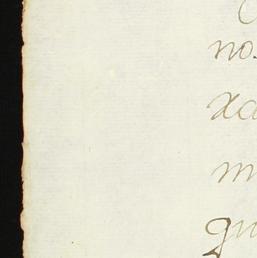 no.
xa
m
qu